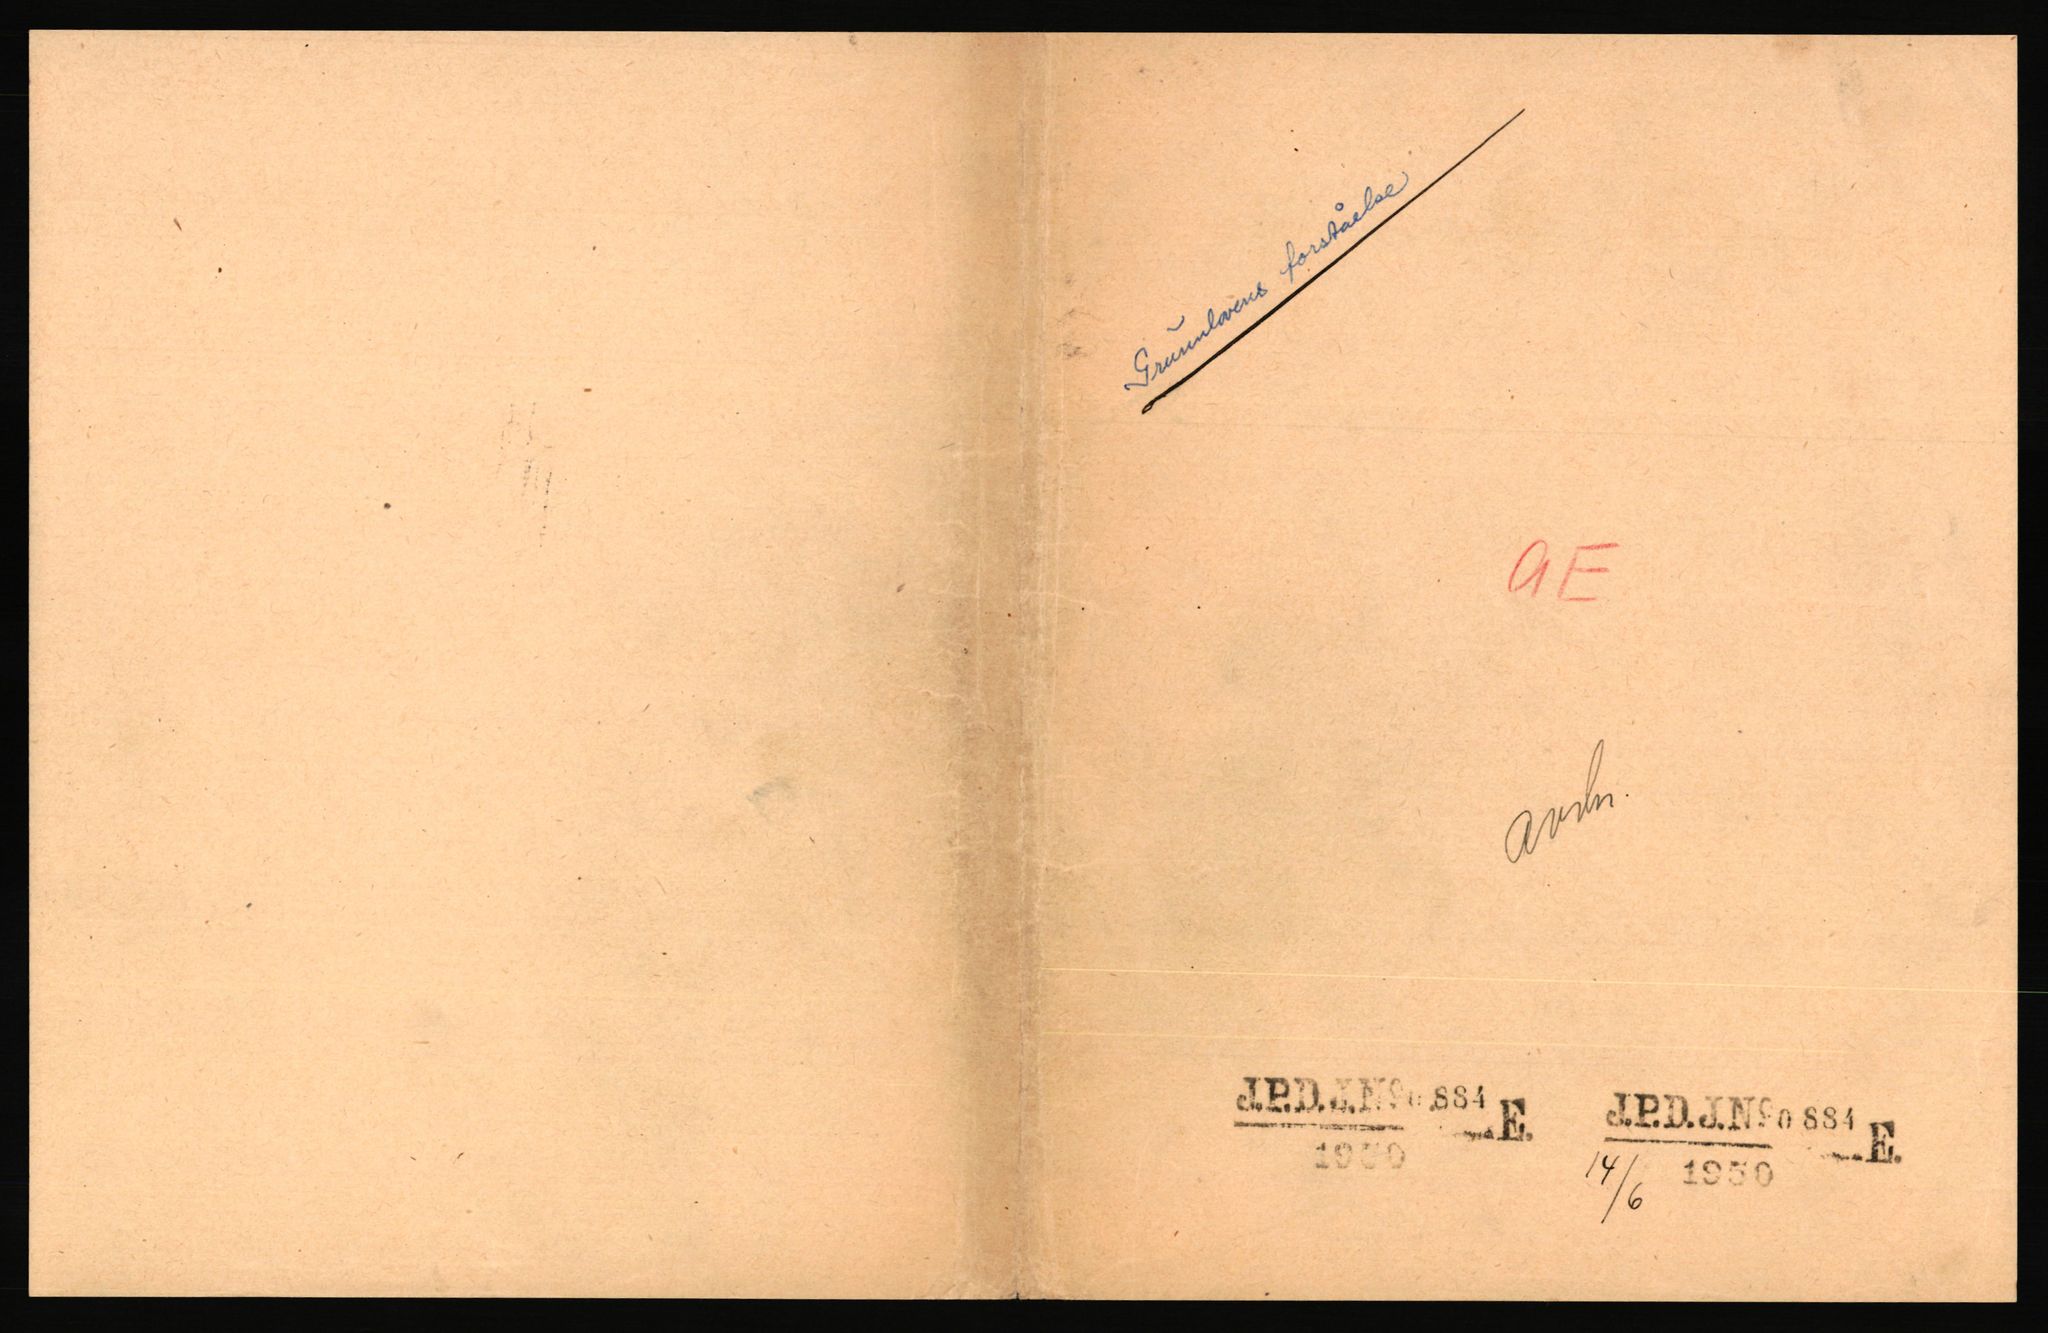 Grunnlovens forståelse
AE
J.P.D.J.Nº 0884 E.
1950
J.P.D.J.Nº 0884 E.
14/6 1950